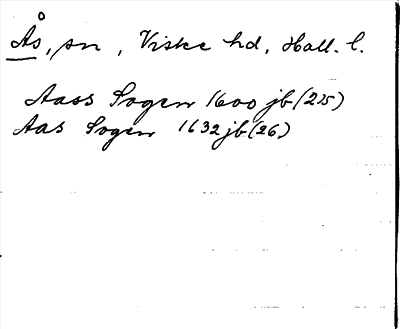 Ås, sn, Viske hd, Hall. l.
Aass Sogen 1600 jb (25)
Aas Sogen 1632 jb (26)